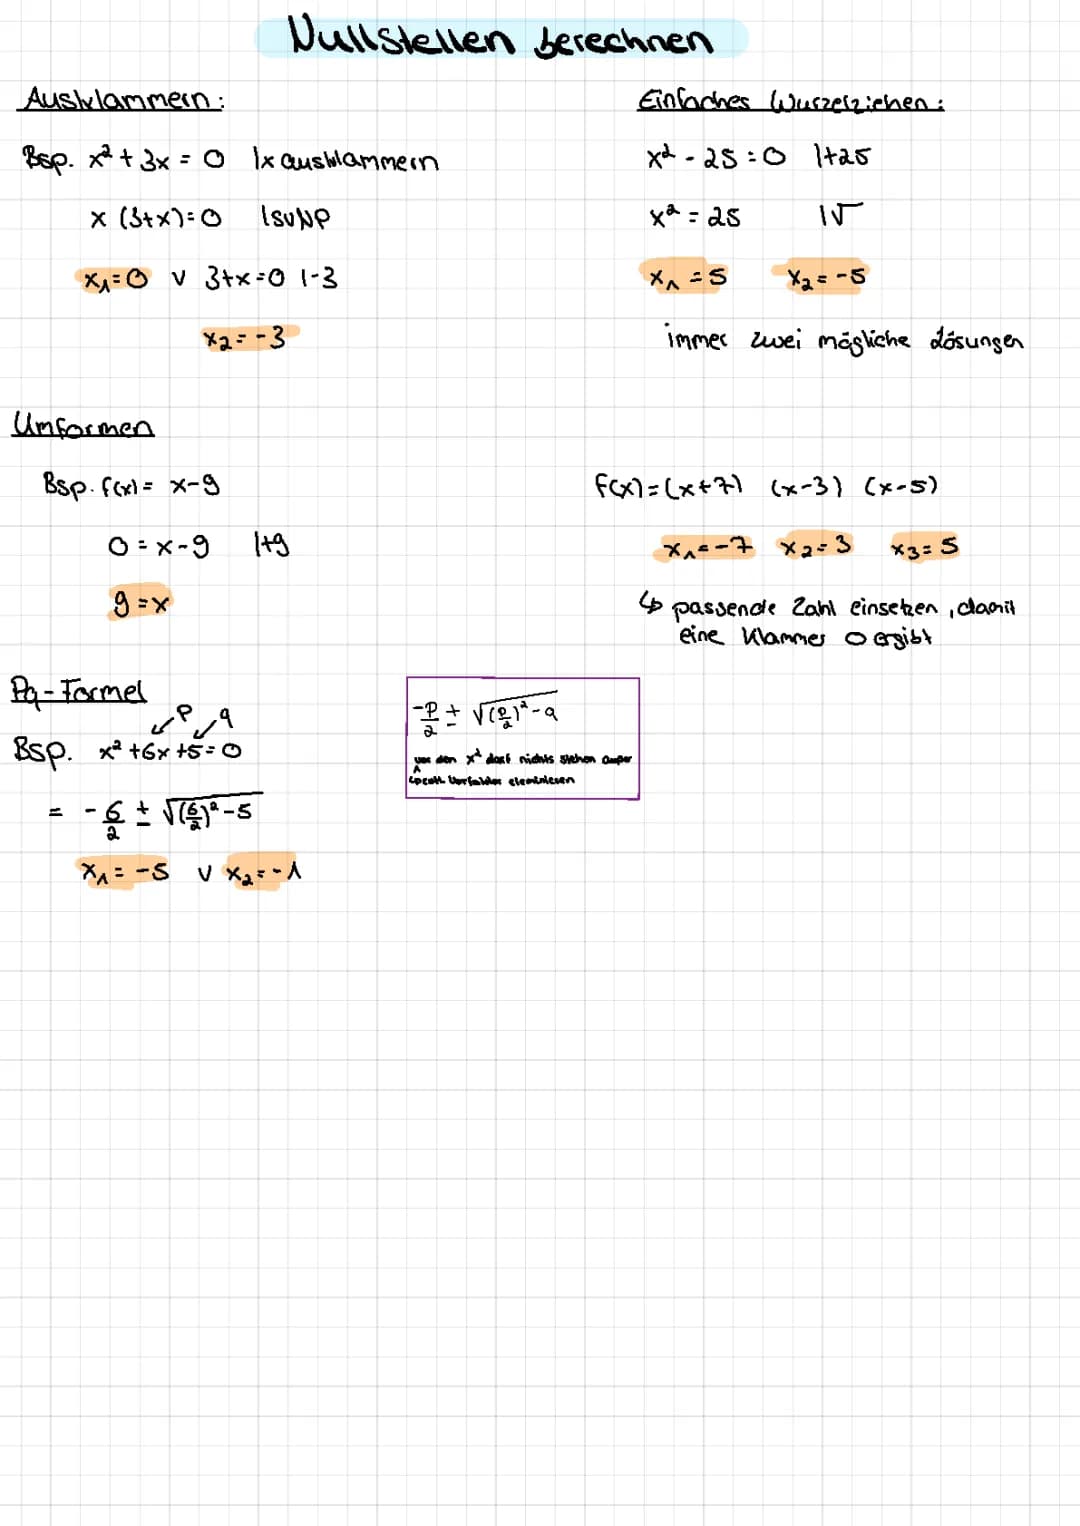 Nullstellen berechnen
Ausklammern:
Bsp. x² + 3x = 0 | x ausklammern
x (3+x) = 0 | SVNP
x₁ = 0 ∨ 3+x = 0 | -3
x₂ = -3
Einfaches Wurzelziehen:
x² - 25 = 0 | +25
x² = 25 | √
x₁ = 5 x₂ = -5
immer zwei mögliche Lösungen
Umformen
Bsp. f(x) = x-9
0 = x-9 | +9
9 = x
f(x) = (x+7) (x-3) (x-5)
x₁ = -7 x₂ = 3 x₃ = 5
↳ passende Zahl einsetzen, damit
eine Klammer 0 ergibt
Pq-Formel
P q
Bsp. x² + 6x + 5 = 0
= -6/2 ± √((6/2)² - 5)
x₁ = -5 ∨ x₂ = -1
-P/2 ± √((P/2)² - q)
vor den x² darf nichts stehen außer